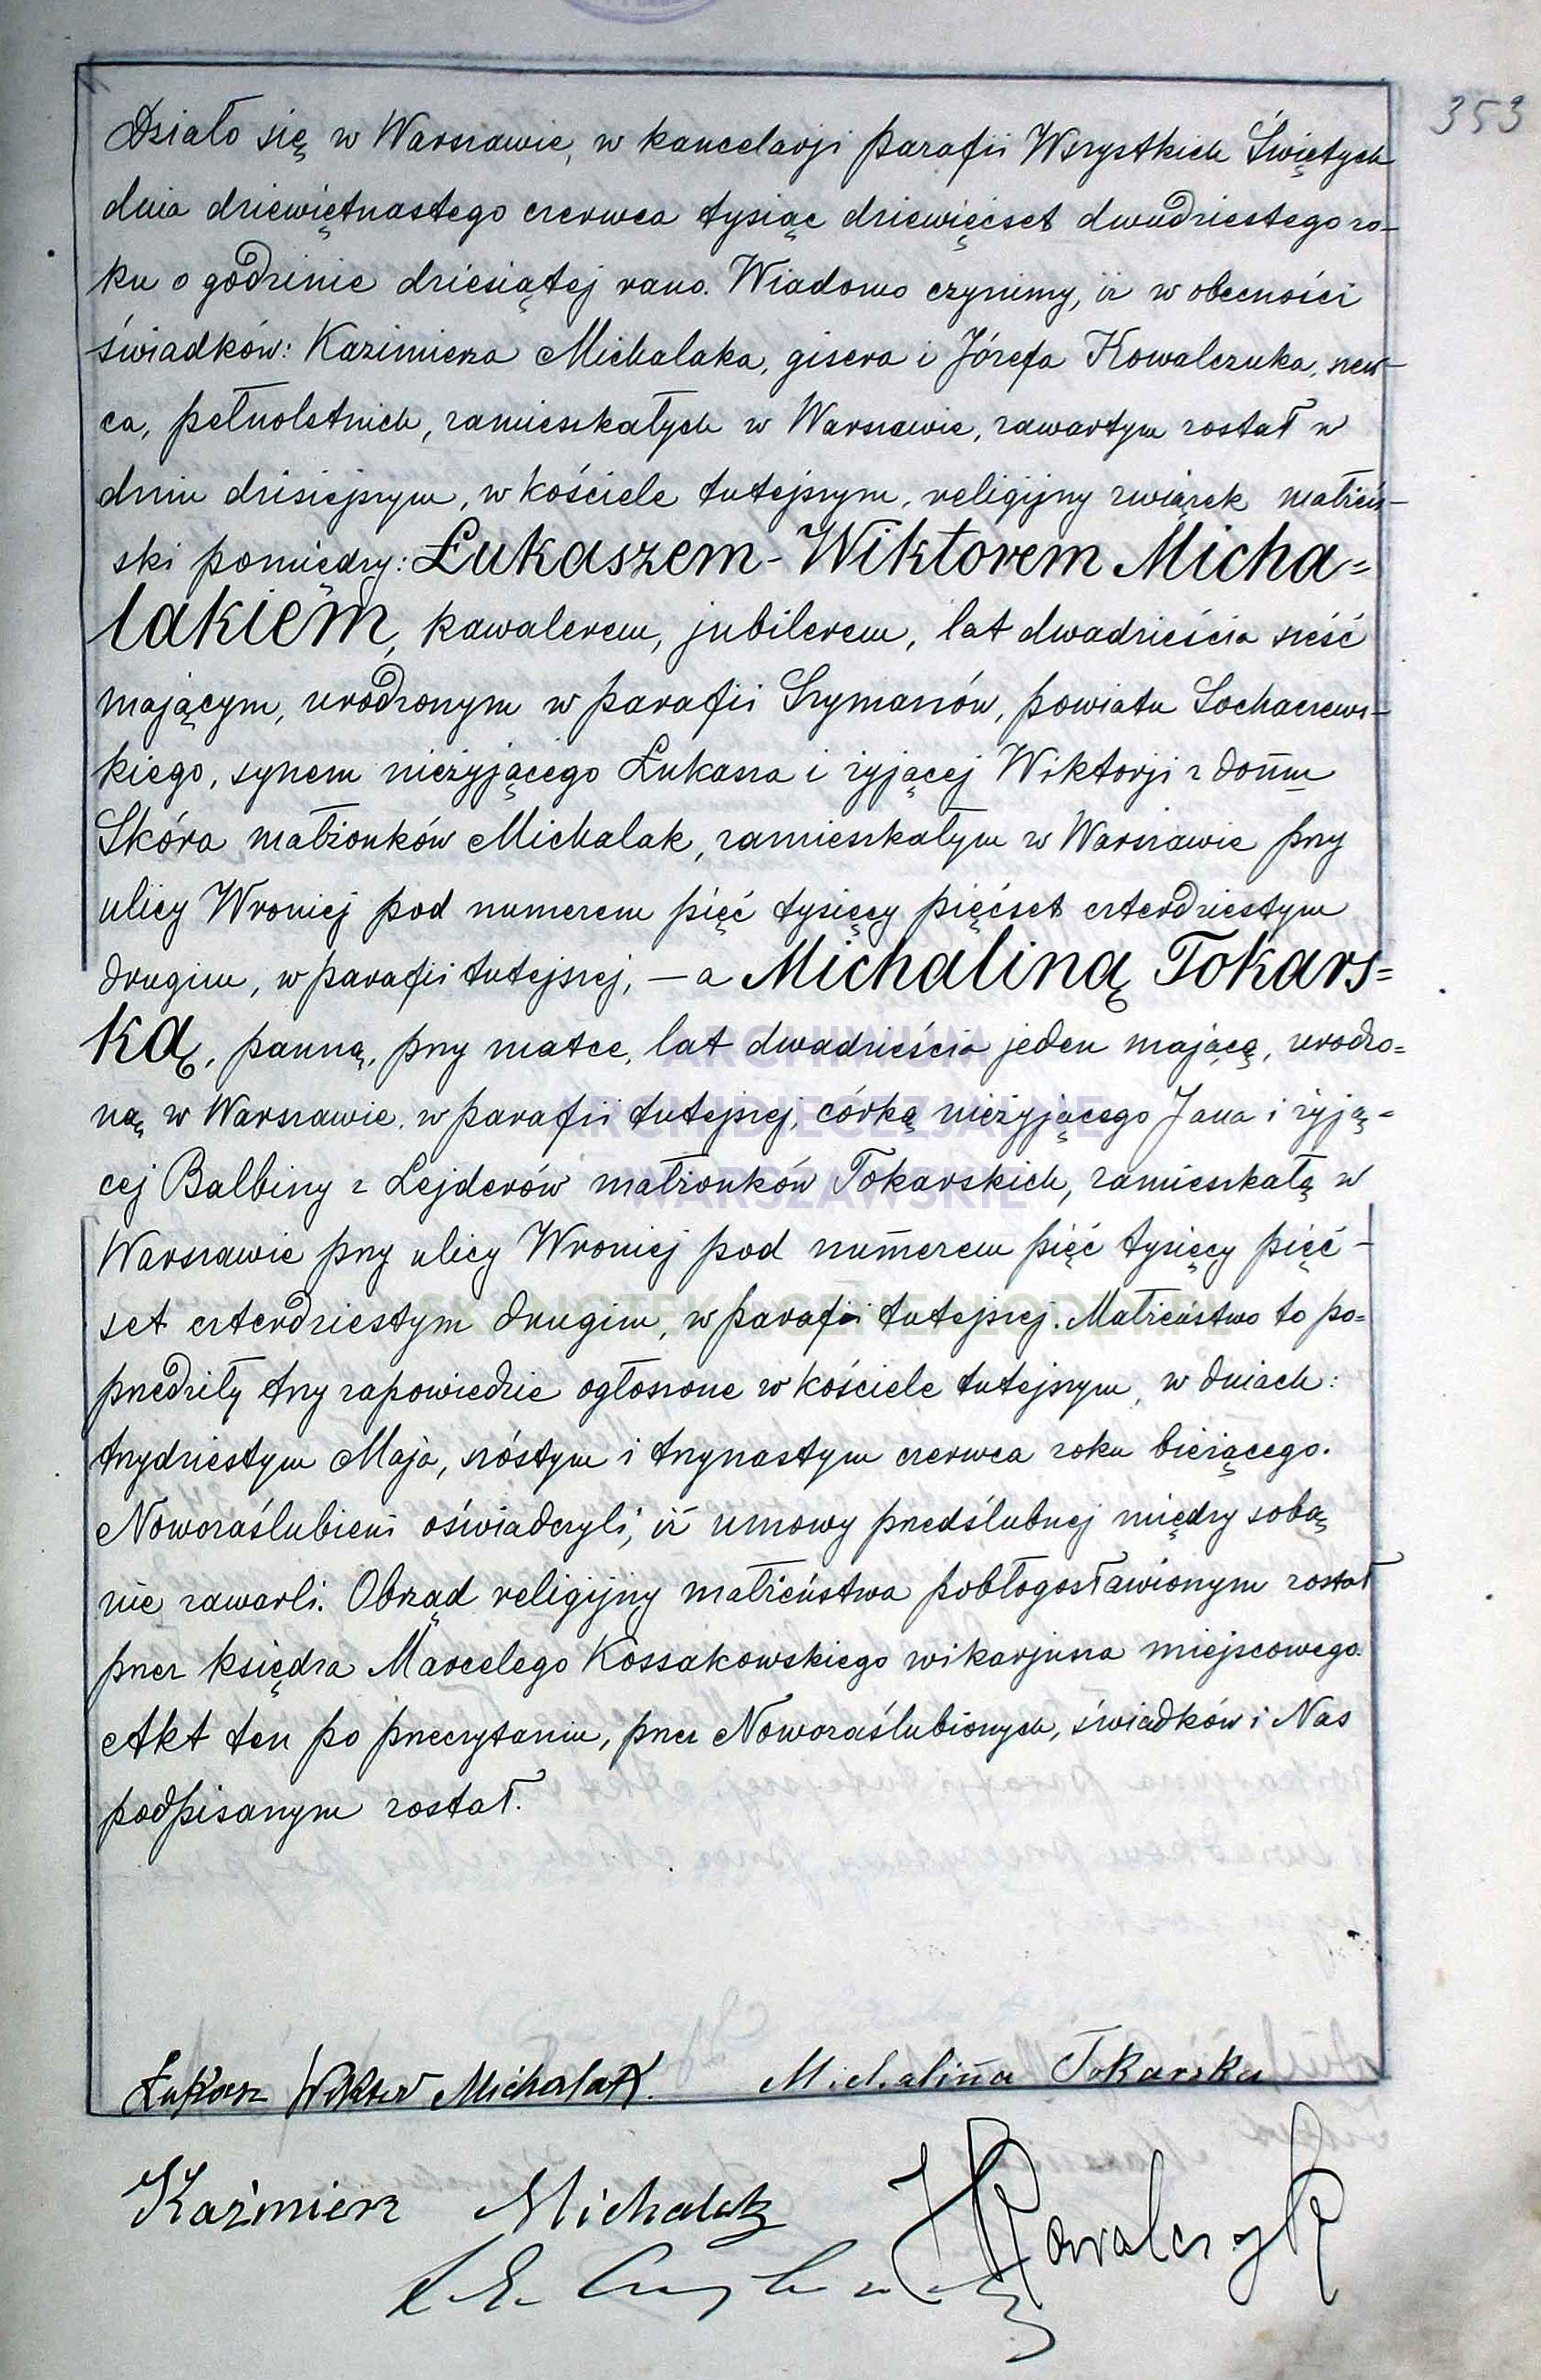 353
Działo się w Warszawie, w kancelarji parafii Wszystkich Świętych
dnia dziewiętnastego czerwca tysiąc dziewięćset dwudziestego ro-
ku o godzinie dziesiątej rano. Wiadomo czynimy, iż w obecności
świadków: Kazimierza Michalaka, gisera i Józefa Kowalczuka, szew-
ca, pełnoletnich, zamieszkałych w Warszawie, zawartym został w
dniu dzisiejszym, w kościele tutejszym, religijny związek małżeń-
ski pomiędzy: Łukaszem-Wiktorem Micha=
lakiem, kawalerem, jubilerem, lat dwadzieścia sześć
mającym, urodzonym w parafii Szymanów, powiatu Sochaczews-
kiego, synem nieżyjącego Łukasza i żyjącej Wiktorji z domu
Skóra małżonków Michalak, zamieszkałym w Warszawie przy
ulicy Wroniej pod numerem pięć tysięcy pięćset czterdziestym
drugim, w parafii tutejszej, — a Michaliną Tokars=
ką, panną, przy matce, lat dwadzieścia jeden mającą, urodzo=
ną w Warszawie, w parafii tutejszej, córką nieżyjącego Jana i żyją=
cej Balbiny z Lejderów małżonków Tokarskich, zamieszkałą w
Warszawie przy ulicy Wroniej pod numerem pięć tysięcy pięć-
set czterdziestym drugim, w parafii tutejszej. Małżeństwo to po=
przedziły trzy zapowiedzie ogłoszone w kościele tutejszym, w dniach:
trzydziestym Maja, szóstym i trzynastym czerwca roku bieżącego.
Nowozaślubieni oświadczyli, iż umowy przedślubnej między sobą
nie zawarli. Obrząd religijny małżeństwa pobłogosławionym został
przez księdza Marcelego Kossakowskiego wikarjusza miejscowego.
Akt ten po przeczytaniu, przez Nowozaślubionych, świadków i Nas
podpisanym został.
ARCHIWUM
ARCHIDIECEZJALNE
WARSZAWSKIE
Łukasz Wiktor Michalak. Michalina Tokarska
Kaźmierz Michalak J Kowalczyk